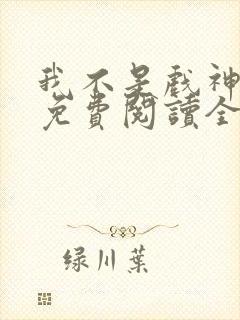 我不是戲神
免費閱讀全
绿川葉